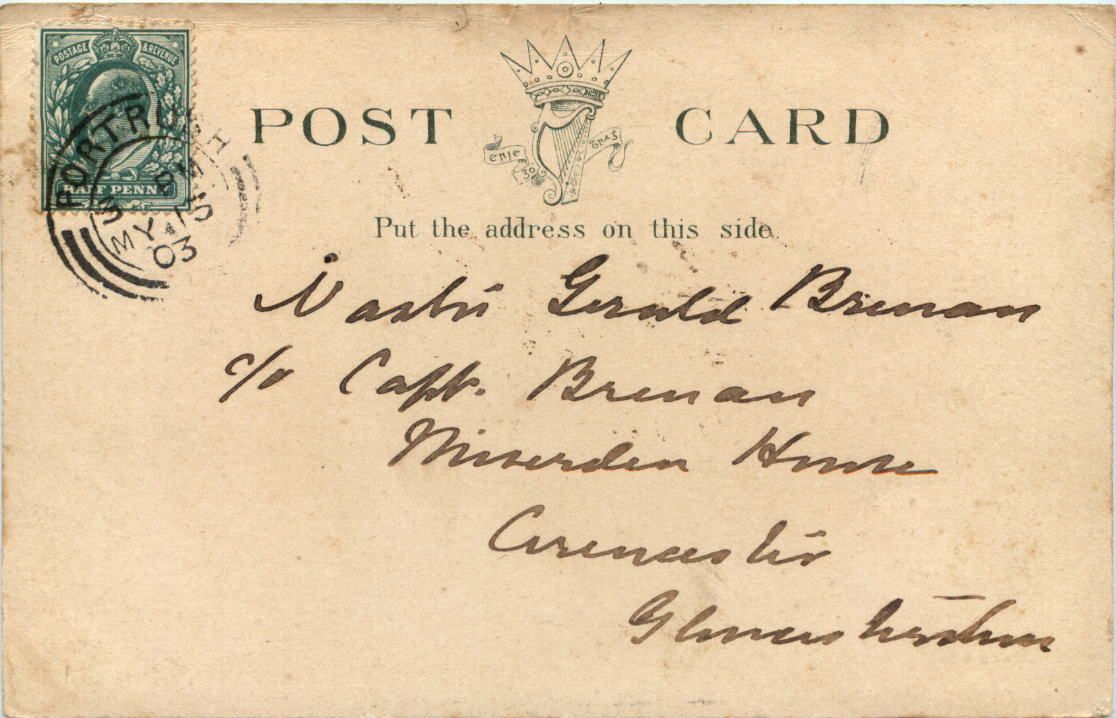 POSTAGE & REVENUE
HALF PENNY
PORTRUSH
PM
MY 15
03
POST CARD
Put the address on this side.
Master Gerald Brenan
c/o Capt. Brenan
Miserden House
Cirencester
Gloucestershire